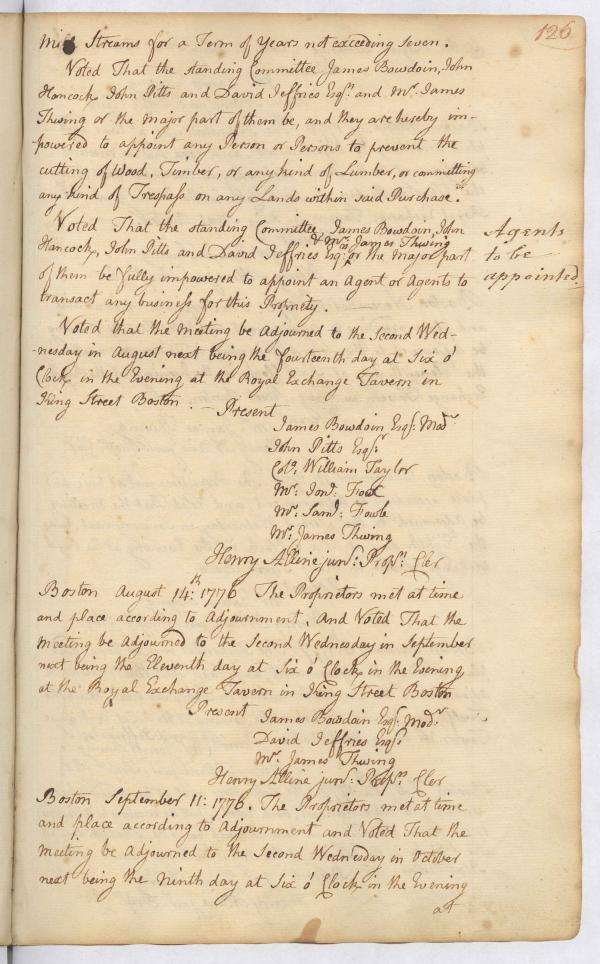 126
Mill Streams for a Term of Years not exceeding Seven.
Voted That the standing Committee James Bowdoin, John
Hancock, John Pitts and David Jeffries Esqrs and Mr. James
Thwing or the Major part of them be, and they are hereby im-
powered to appoint any Person or Persons to prevent the
cutting of Wood, Timber, or any kind of Lumber, or committing
any kind of Trespass on any Lands within said Purchase.
Voted That the standing Committee, James Bowdoin, John
Agents
to be
appointed.
& Mr. James Thwing
Hancock, John Pitts and David Jeffries Esqrs: or the Major part
of them be fully impowered to appoint an Agent or Agents to
transact any business for this Propriety.
Voted that the Meeting be Adjourned to the Second Wed-
-nesday in August next being the fourteenth day at Six o'
Clock in the Evening at the Royal Exchange Tavern in
King Street Boston. — Present
James Bowdoin Esqr: Modr
John Pitts Esqr
Colo: William Taylor
Mr. Jona:
Mr. Saml: Fowle
Mr. James Thwing
Henry Alline junr: Proprs: Cler
Boston August 14th: 1776 The Proprietors met at time
and place according to Adjournment, And Voted That the
Meeting be Adjourned to the Second Wednesday in September
next being the Eleventh day at Six o' Clock in the Evening
at the Royal Exchange Tavern in King Street Boston
Present James Bowdoin Esqr: Modr
David Jeffries Esqr
Mr. James Thwing
Henry Alline junr: Proprs Cler
Boston September 11: 1776. The Proprietors met at time
and place according to Adjournment and Voted That the
Meeting be Adjourned to the Second Wednesday in October
next being the Ninth day at Six o' Clock in the Evening
at